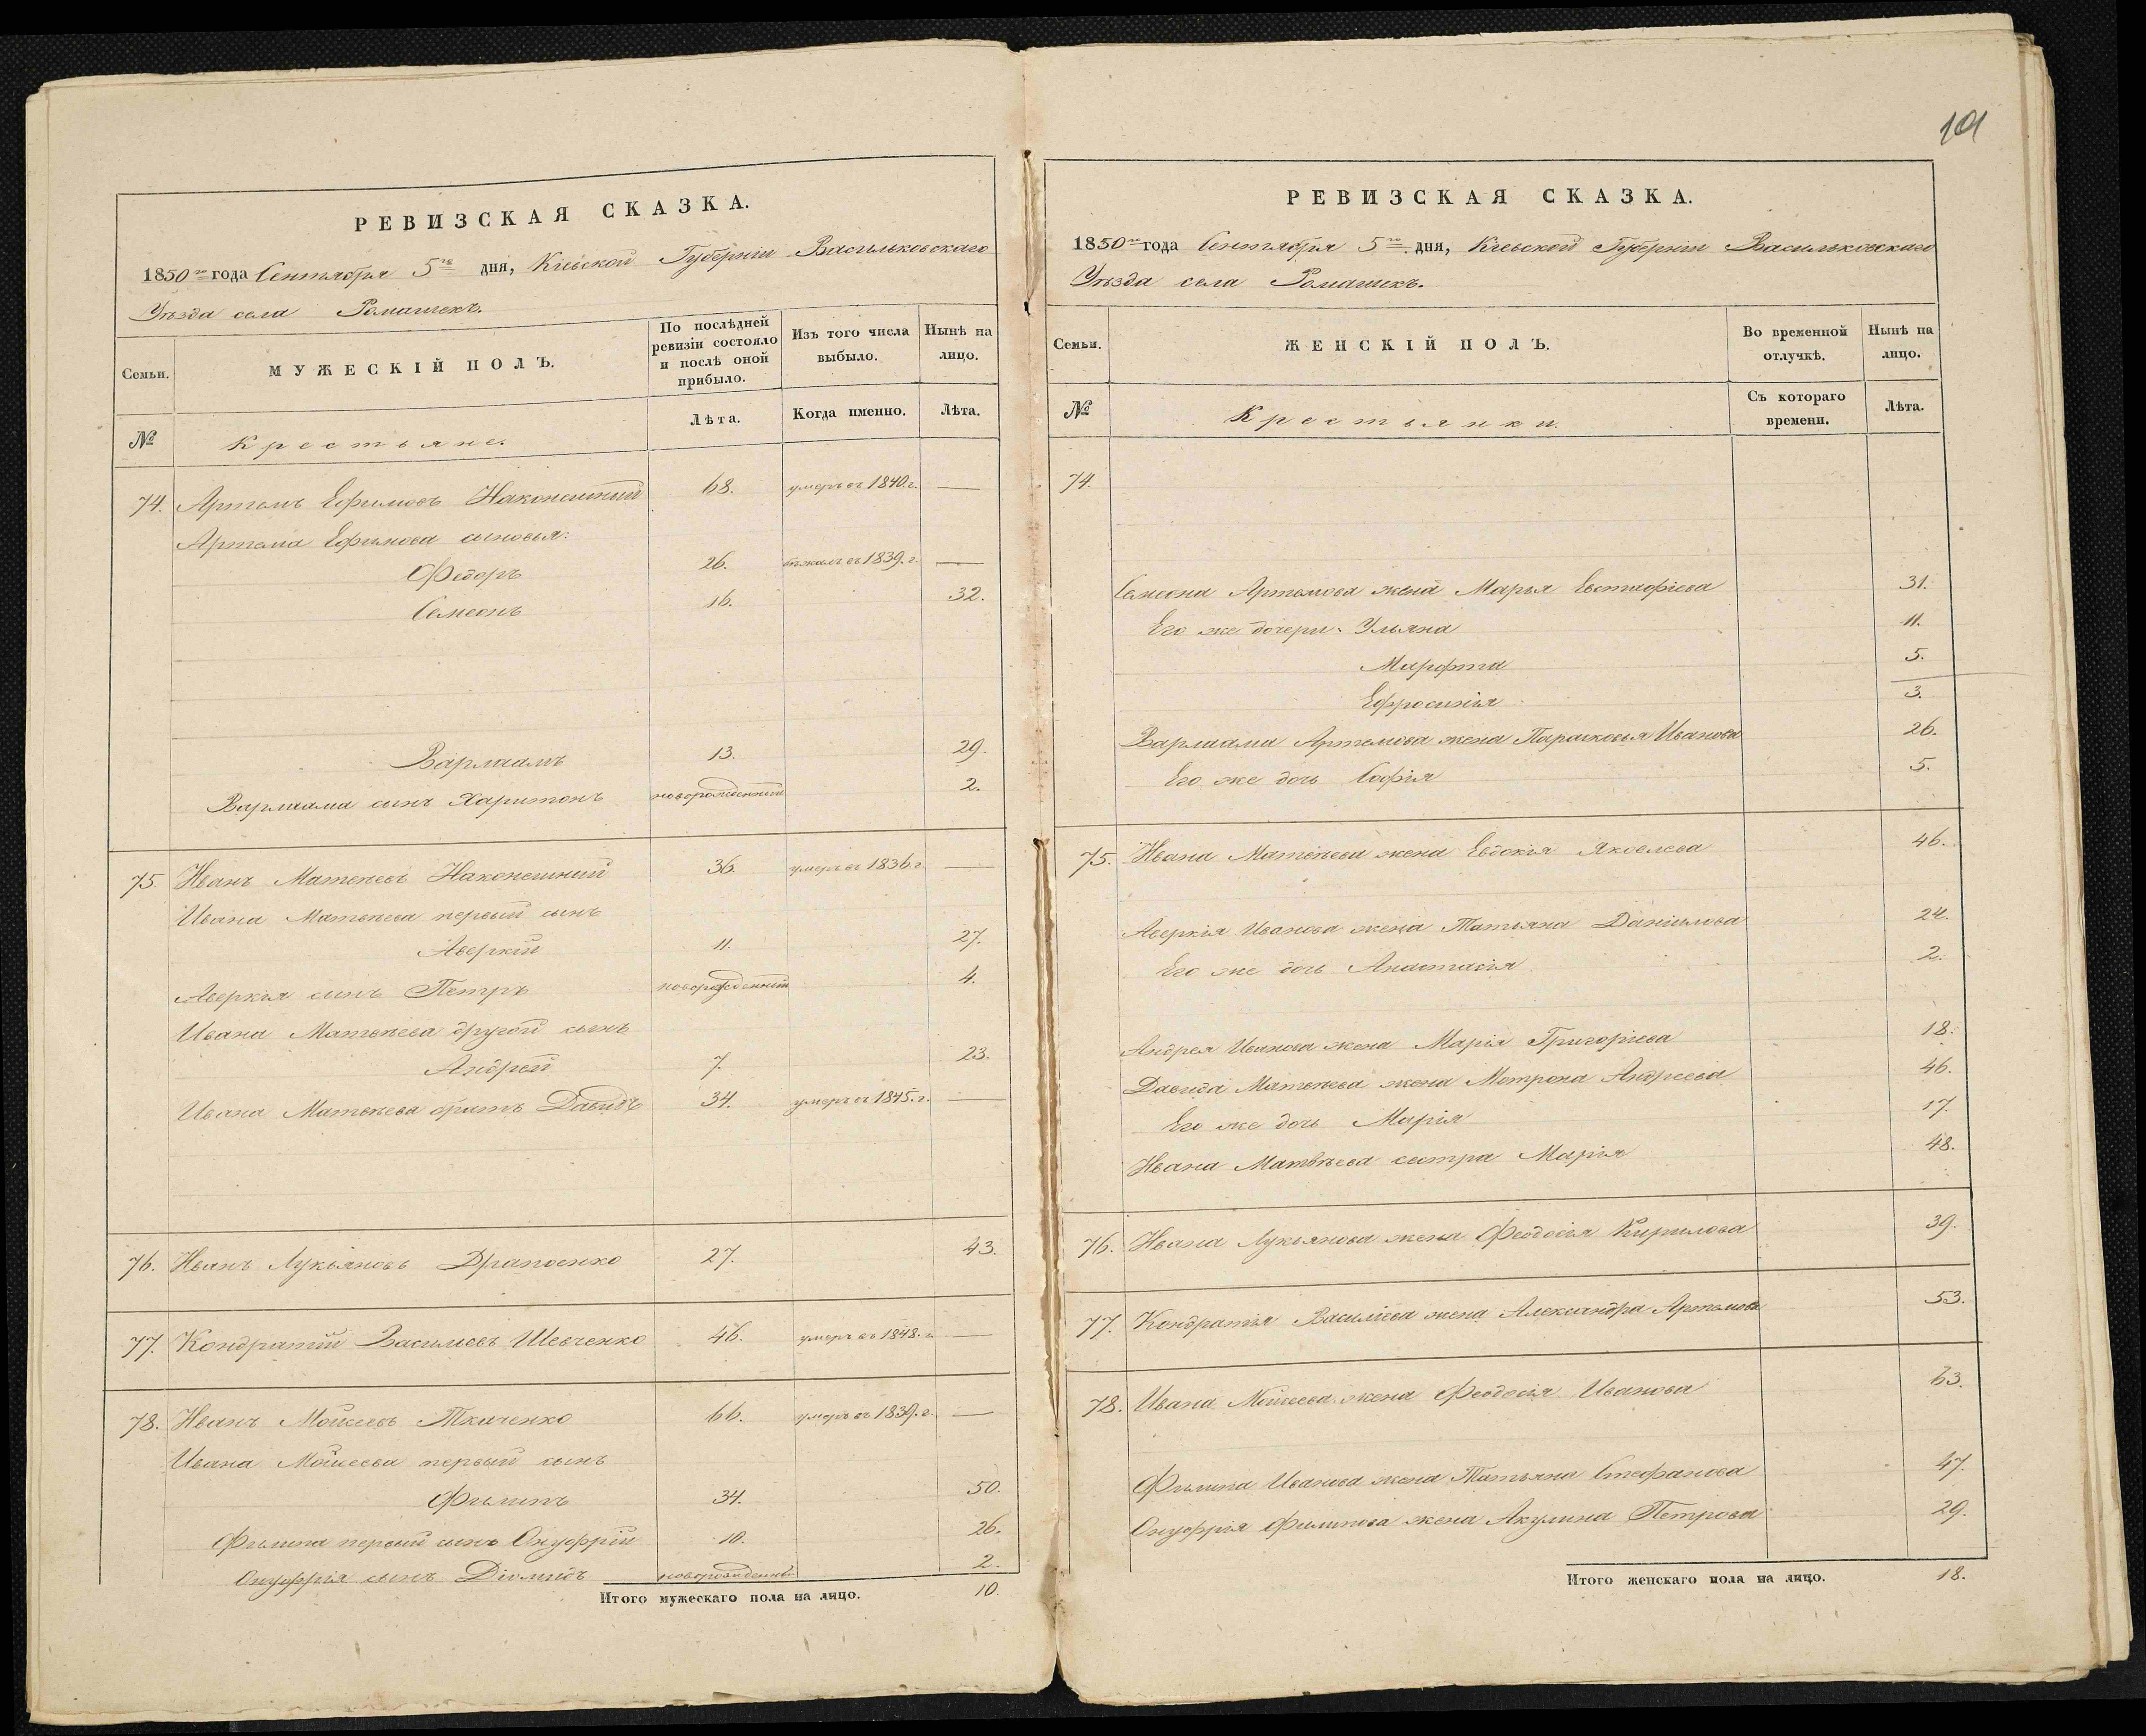 101
РЕВИЗСКАЯ СКАЗКА.
1850го года Сентября 5го дня, Кіевской Губерніи Васильковскаго
Уѣзда села Ромашекъ.
Семьи.
МУЖЕСКІЙ ПОЛЪ.
По послѣдней ревизіи состояло и послѣ оной прибыло.
Изъ того числа выбыло.
Нынѣ на лицо.
№
Крестьяне.
Лѣта.
Когда именно.
Лѣта.
74. Артемъ Ефимовъ Наконешный 68. умеръ въ 1840.г. —
Артема Ефимова сыновья:
Федоръ 26. бѣжалъ въ 1839.г. —
Семеонъ 16. 32.
Варлаамъ 13. 29.
Варлаама сынъ Харитонъ новорожденный 2.
75. Иванъ Матвѣевъ Наконешный 36. умеръ въ 1836.г. —
Ивана Матвѣева первый сынъ
Аверкій 11. 27.
Аверкія сынъ Петръ новорожденный 4.
Ивана Матвѣева другой сынъ
Андрей 7. 23.
Ивана Матвѣева братъ Давидъ 34. умеръ въ 1845.г. —
76. Иванъ Лукьяновъ Драпоенко 27. 43.
77. Кондратій Василіевъ Шевченко 46. умеръ въ 1848.г. —
78. Иванъ Мойсеевъ Ткаченко 66. умеръ въ 1839.г. —
Ивана Мойсеева первый сынъ
Филипъ 34. 50.
Филипа первый сынъ Онуфрій 10. 26.
Онуфрія сынъ Діомидъ новорожденный 2.
Итого мужескаго пола на лицо. 10.
РЕВИЗСКАЯ СКАЗКА.
1850го года Сентября 5го дня, Кіевской Губерніи Васильковскаго
Уѣзда села Ромашекъ.
Семьи.
ЖЕНСКІЙ ПОЛЪ.
Во временной отлучкѣ.
Нынѣ на лицо.
№
Крестьянки.
Съ котораго времени.
Лѣта.
74.
Семеона Артемова жена Марья Евстафіева 31.
Его же дочери: Ульяна 11.
Марфта 5.
Ефросинія 3.
Варлаама Артемова жена Парасковья Иванова 26.
Его же дочь Софія 5.
75. Ивана Матвѣева жена Евдокія Яковлева 46.
Аверкія Иванова жена Татьяна Даніилова 24.
Его же дочь Анастасія 2.
Андрея Иванова жена Марія Григоріева 18.
Давида Матвѣева жена Мотрона Андреева 46.
Его же дочь Марія 17.
Ивана Матвѣева сестра Марія 48.
76. Ивана Лукьянова жена Феодосія Кирилова 39.
77. Кондратія Василіева жена Александра Артемова 53.
78. Ивана Мойсеева жена Феодосія Иванова 63.
Филипа Иванова жена Татьяна Стефанова 47.
Онуфрія Филипова жена Акулина Петрова 29.
Итого женскаго пола на лицо. 18.